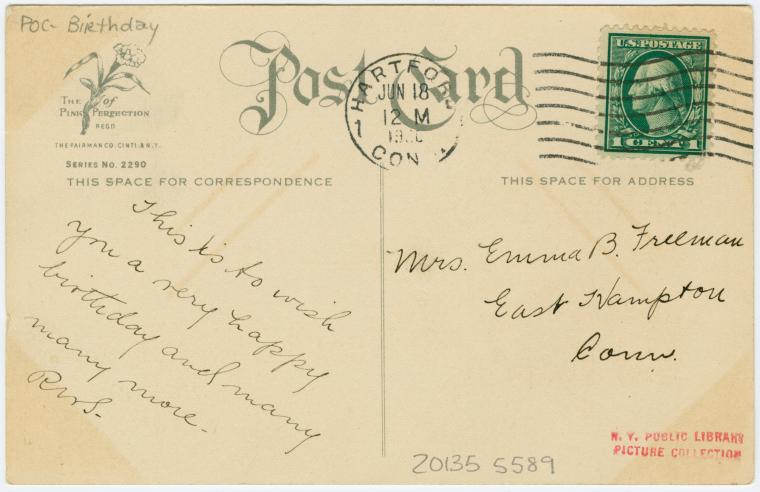 POC - Birthday
Post Card
THE of
PINK PERFECTION
REGD
THE FAIRMAN CO. CINTI. & N.Y.
SERIES NO. 2290
HARTFORD
JUN 18
12 M
1
CON
U.S. POSTAGE
1 CENT 1
THIS SPACE FOR CORRESPONDENCE
THIS SPACE FOR ADDRESS
This is to wish
you a very happy
birthday and many
many more.
Mrs. Emma B. Freeman
East Hampton
Conn.
N. Y. PUBLIC LIBRARY
PICTURE COLLECTION
Z0135 5589